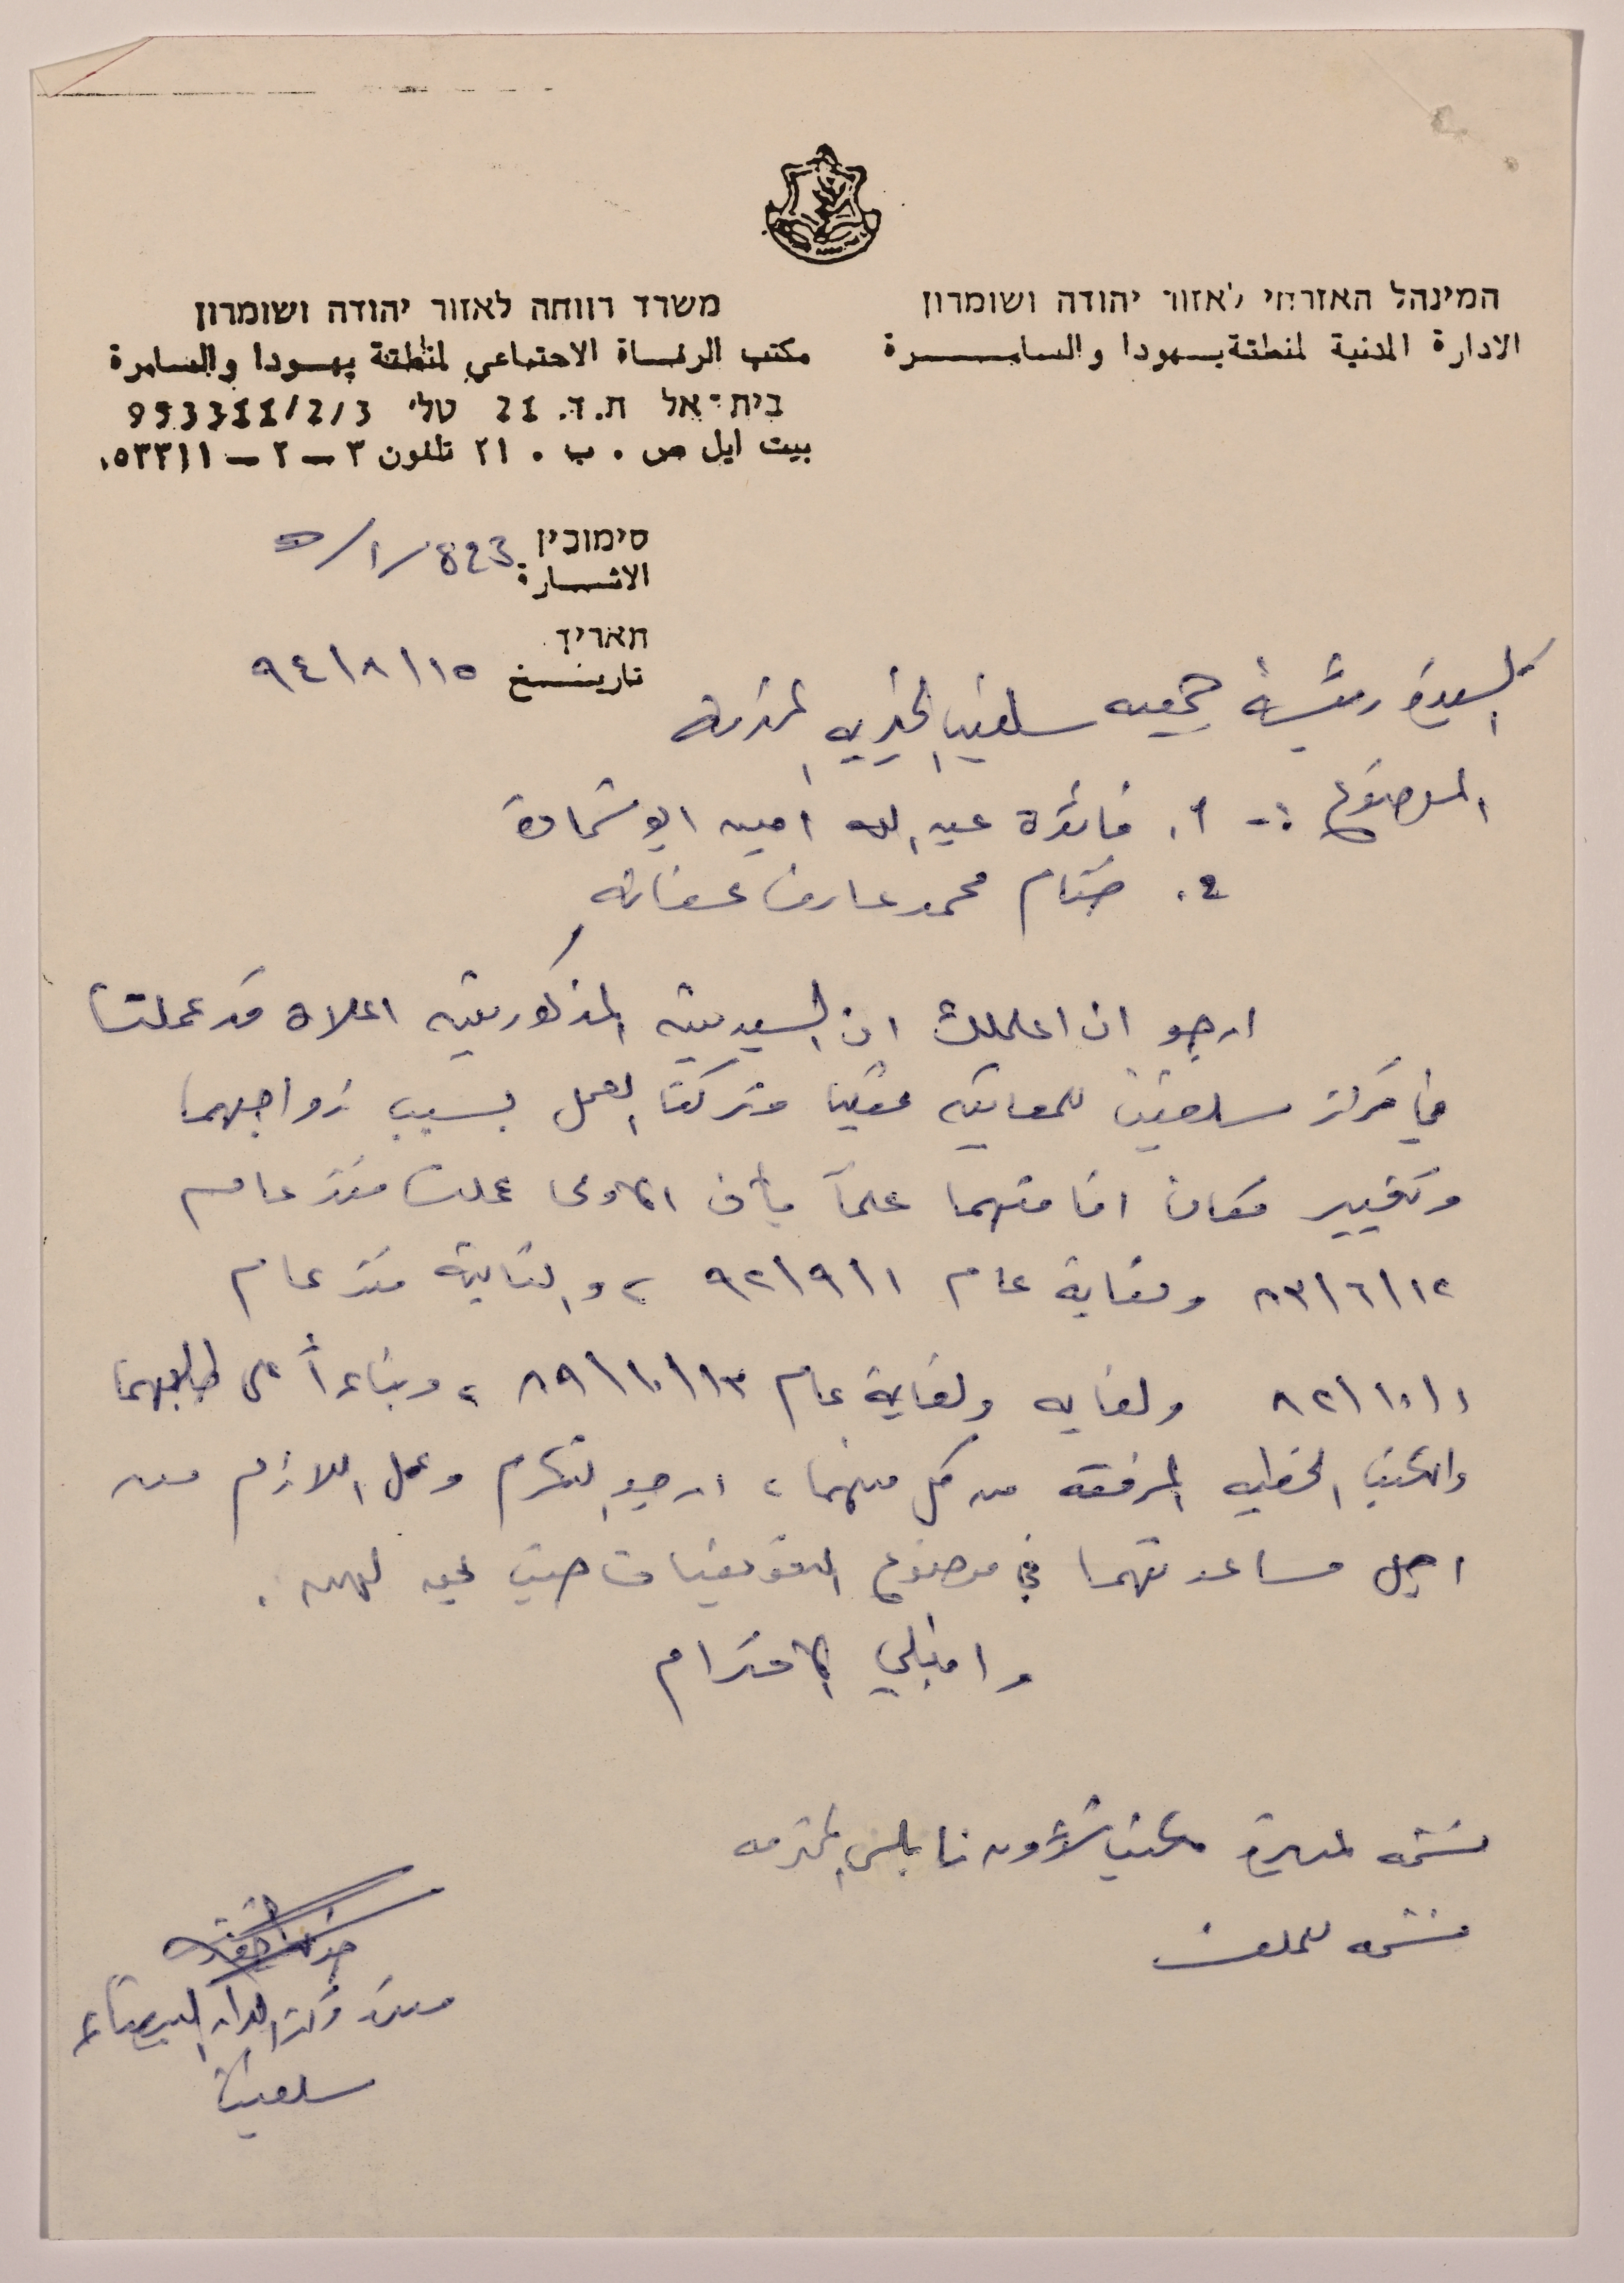 המינהל האזרחי לאזור יהודה ושומרון
الادارة المدنية لمنطقة يهودا والسامرة
משרד רווחה לאזור יהודה ושומרון
مكتب الرفاة الاجتماعي لمنطقة يهودا والسامرة
בית-אל ת.ד. 21 טל' 953311/2/3
بيت ايل ص . ب . ٢١ تلفون ٣ – ٢ – ٠٥٣٣١١
סימוכין
الاشارة 823/١/٥
תאריך
تاريخ ١٥/٨/٩٤
السيدة رئيسة جمعيه سلفيت الخيريه المحترمة
الموضوع :- ١. فائدة عبد الله امين ابو شحادة
٢. ختام محمد عارف عفانه
ارجو ان اعلمك ان السيدتين المذكورتين اعلاه قد عملتا
في مركز سلفيت للمعاقين عقليا وتركتا العمل بسبب زواجهما
وتغيير مكان اقامتهما علماً بأن الاولى عملت منذ عام
١٢/٦/٨٣ ولغاية عام ١/٩/٩٢ ، والثانية منذ عام
١/١٠/٨٢ ولغايه ولغاية عام ١٣/١٠/٨٩ ، وبناءاً على طلبهما
والكتب الخطيه المرفقه من كل منهما ، ارجو التكرم وعمل اللازم من
اجل مساعدتهما في موضوع التعويضات حيث يحق لهن .
واقبلي الاحترام
نسخه لمديرة مكتب شؤون نابلس المحترمه
نسخه للملف
مركز الدار البيضاء
سلفيت